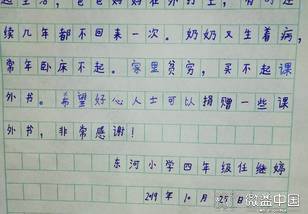 续几年都不回来一次。奶奶又生着病，
常年卧床不起。家里贫穷，买不起课
外书。希望好心人士可以捐赠一些课
外书，非常感谢！
东河小学四年级任继婷
2019年10月25日
微益中国